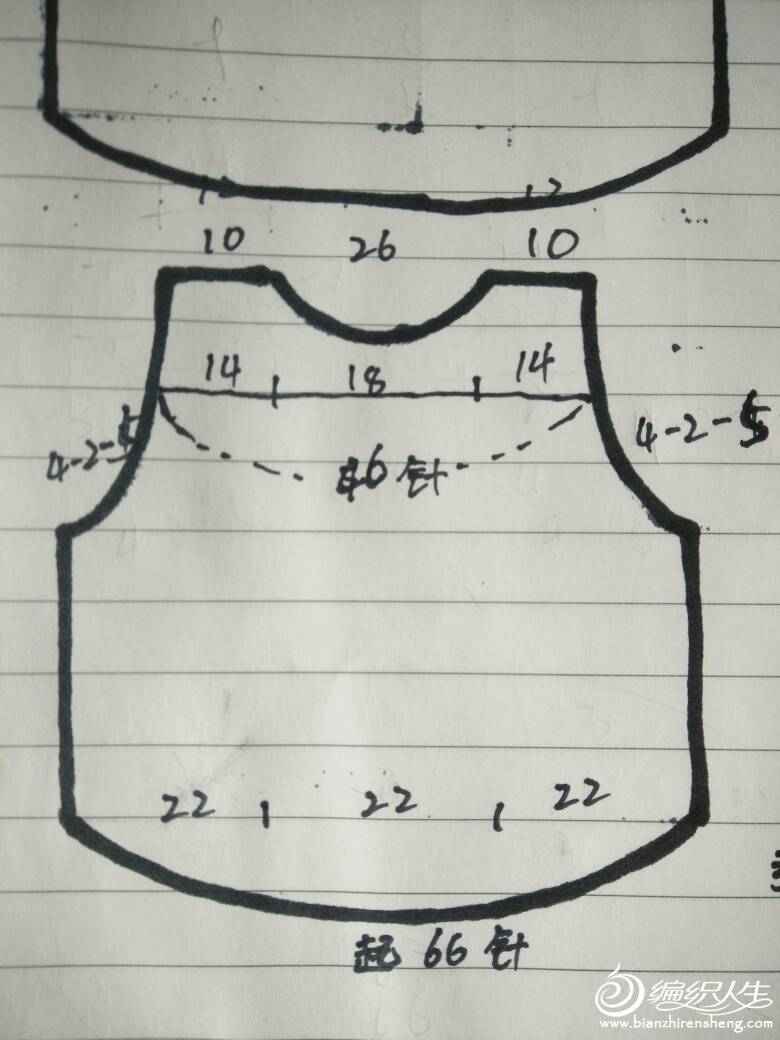 10 26 10
14 18 14
4-2-5 4-2-5
46针
22 22 22
起 66 针
编织人生
www.bianzhirensheng.com